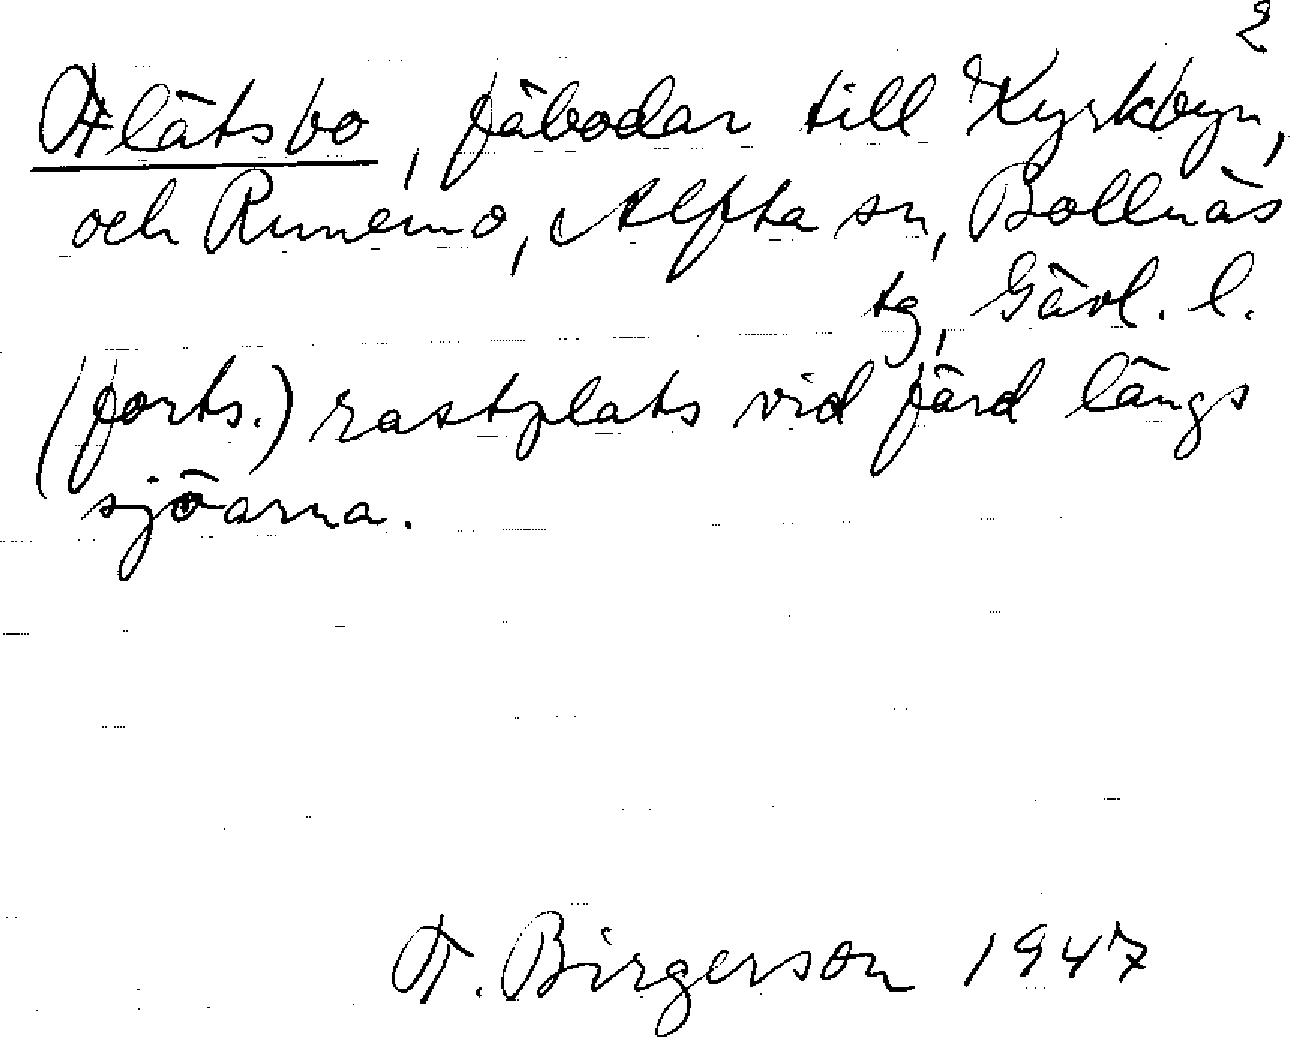 2
Flätsbo, fäbodar till Kyrkbyn,
och Runemo, Alfta sn, Bollnäs
tg, Gävl. l.
(forts.) rastplats vid färd längs
sjöarna.
T. Birgerson 1947